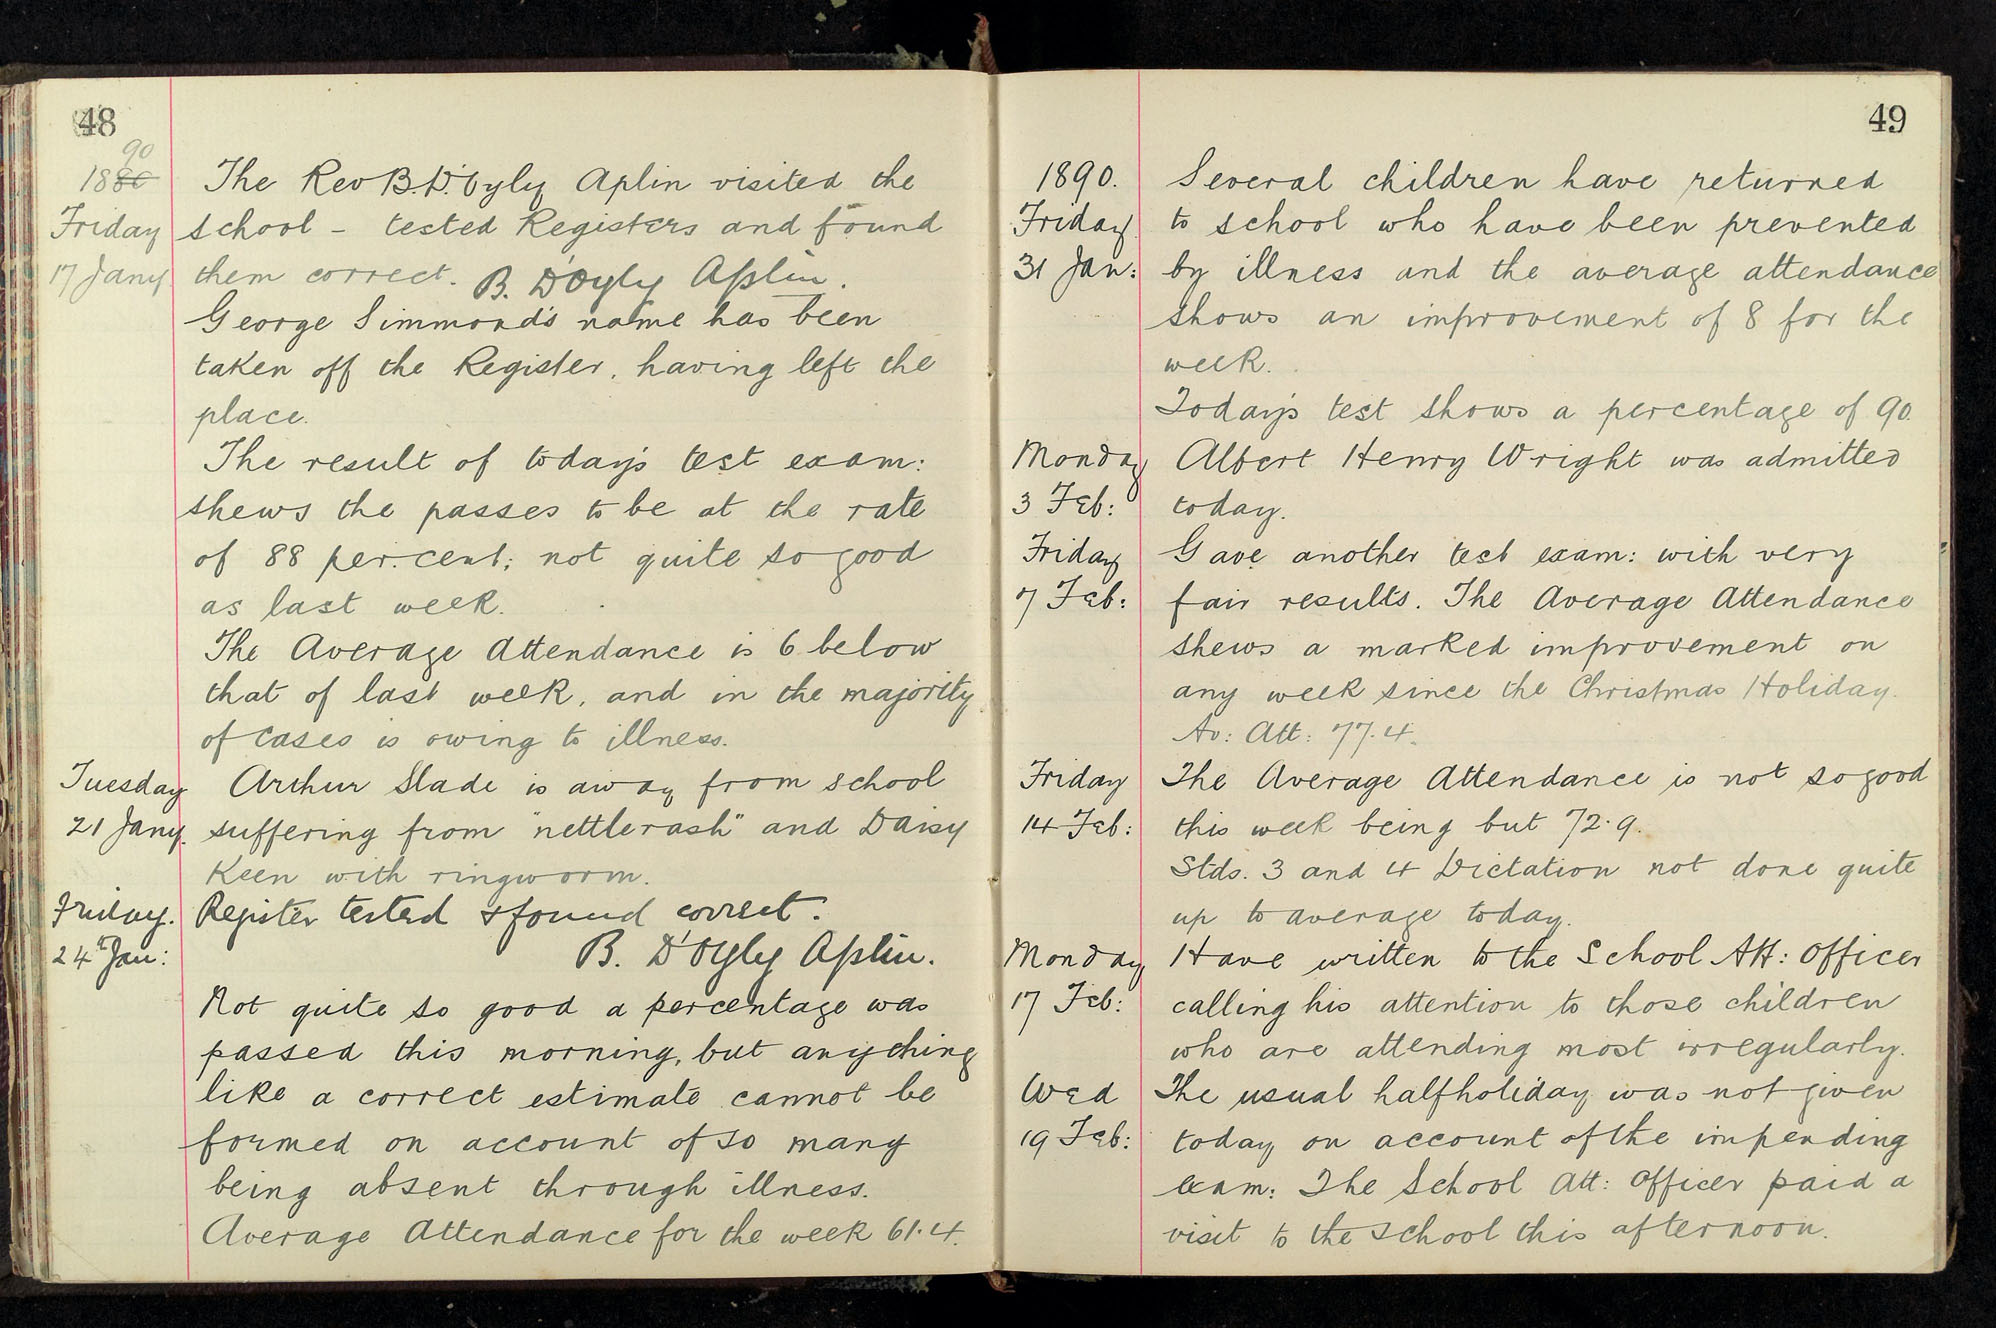 48
90
1880 The Rev B. D'Oyly Aplin visited the
Friday school - tested Registers and found
17 Jany them correct. B. D'Oyly Aplin.
George Simmond's name has been
taken off the Register, having left the
place.
The result of today's test exam:
shews the passes to be at the rate
of 88 per. cent; not quite so good
as last week.
The Average Attendance is 6 below
that of last week, and in the majority
of cases is owing to illness.
Tuesday Arthur Slade is away from school
21 Jany. suffering from "nettlerash" and Daisy
Keen with ringworm.
Friday. Register tested & found correct.
24th Jan: B. D'Oyly Aplin.
Not quite so good a percentage was
passed this morning, but anything
like a correct estimate cannot be
formed on account of so many
being absent through illness.
Average Attendance for the week 61.4.
49
1890. Several children have returned
Friday to school who have been prevented
31 Jan: by illness and the average attendance
shows an improvement of 8 for the
week.
Today's test shows a percentage of 90.
Monday Albert Henry Wright was admitted
3 Feb: today.
Friday Gave another test exam: with very
7 Feb: fair results. The Average Attendance
shews a marked improvement on
any week since the Christmas Holiday.
Av: Att: 77.4.
Friday The Average Attendance is not so good
14 Feb: this week being but 72.9.
Stds. 3 and 4 Dictation not done quite
up to average today.
Monday Have written to the School Att: Officer
17 Feb: calling his attention to those children
who are attending most irregularly.
Wed The usual halfholiday was not given
19 Feb: today on account of the impending
exam: The School Att: Officer paid a
visit to the school this afternoon.